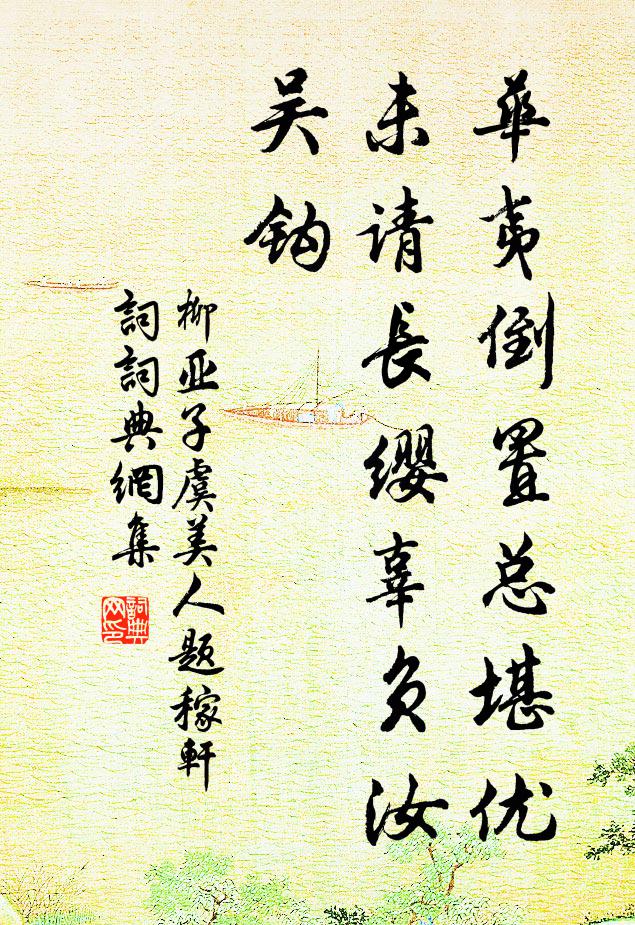 華夷倒置总堪优
未请長缨辜负汝
吴钩
柳亚子虞美人题稼軒
詞詞典網集
詞典网印